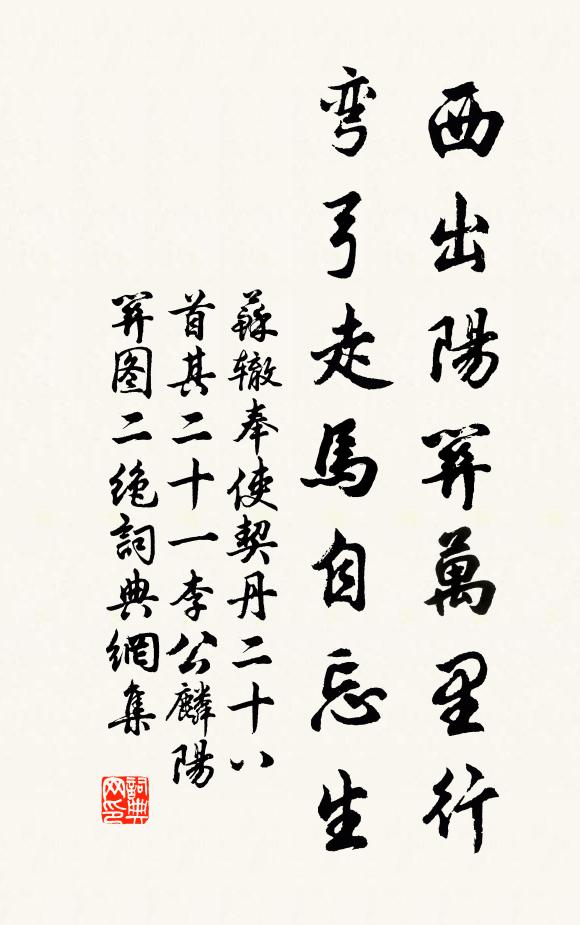 西出陽關萬里行
弯弓走馬自忘生
蘇辙奉使契丹二十八
首其二十一李公麟陽
關图二绝詞典網集
詞典
网印